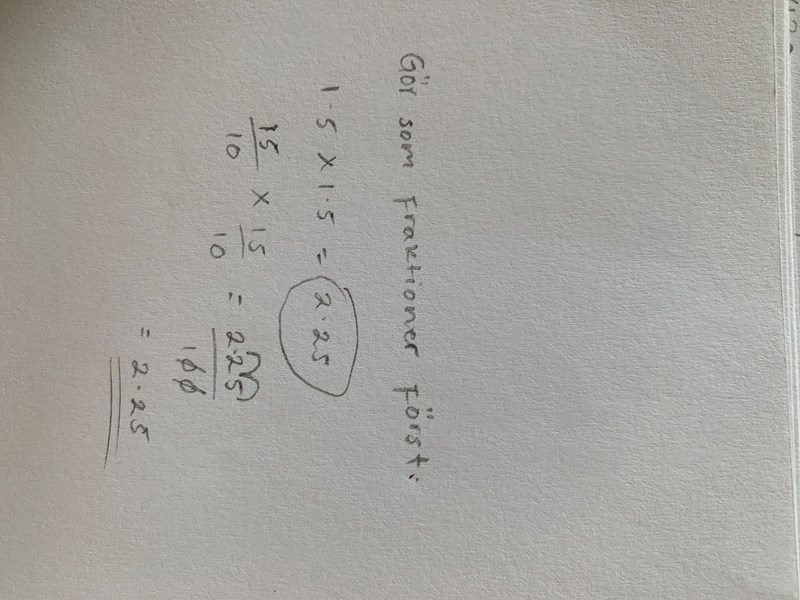 Gör som Fraktioner Först:
1.5 × 1.5 = 2.25
15/10 × 15/10 = 2.25/100
= 2.25